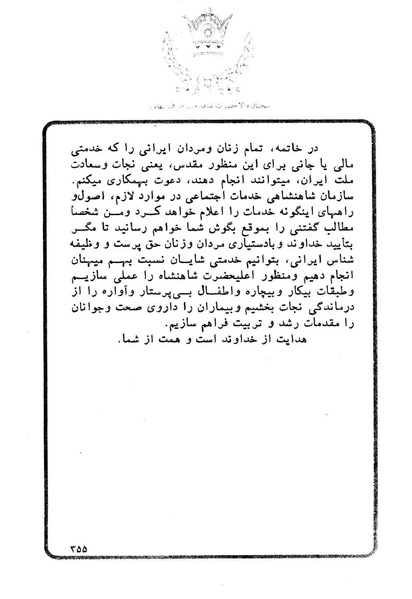 در خاتمه، تمام زنان ومردان ایرانی را که خدمتی
مالی یا جانی برای این منظور مقدس، یعنی نجات وسعادت
ملت ایران، میتوانند انجام دهند، دعوت بهمکاری میکنم.
سازمان شاهنشاهی خدمات اجتماعی در موارد لازم، اصول و
راههای اینگونه خدمات را اعلام خواهد کرد ومن شخصاً
مطالب گفتنی را بموقع بگوش شما خواهم رسانید تا مگر
بتأیید خداوند وبادستیاری مردان وزنان حق پرست و وظیفه
شناس ایرانی، بتوانیم خدمتی شایان نسبت بهم میهنان
انجام دهیم ومنظور اعلیحضرت شاهنشاه را عملی سازیم
وطبقات بیکار وبیچاره واطفال بی‌پرستار وآواره را از
درماندگی نجات بخشیم وبیماران را داروی صحت وجوانان
را مقدمات رشد و تربیت فراهم سازیم.
هدایت از خداوند است و همت از شما.
۳۵۵